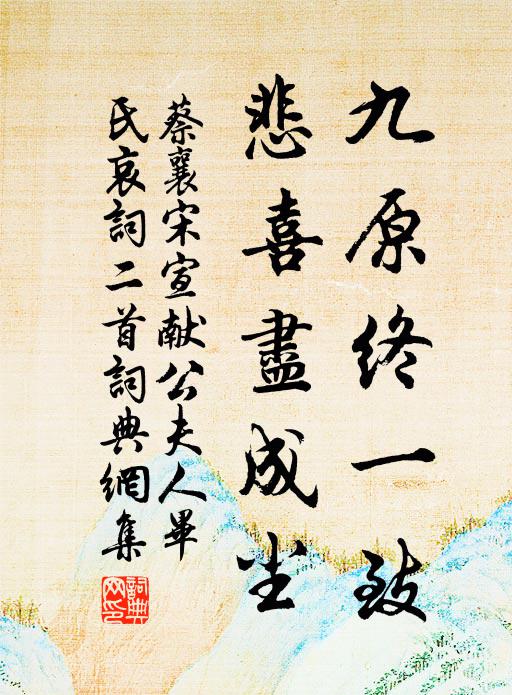 九原終一致
悲喜盡成尘
蔡襄宋宣献公夫人畢
氏哀詞二首詞典網集
詞典網印